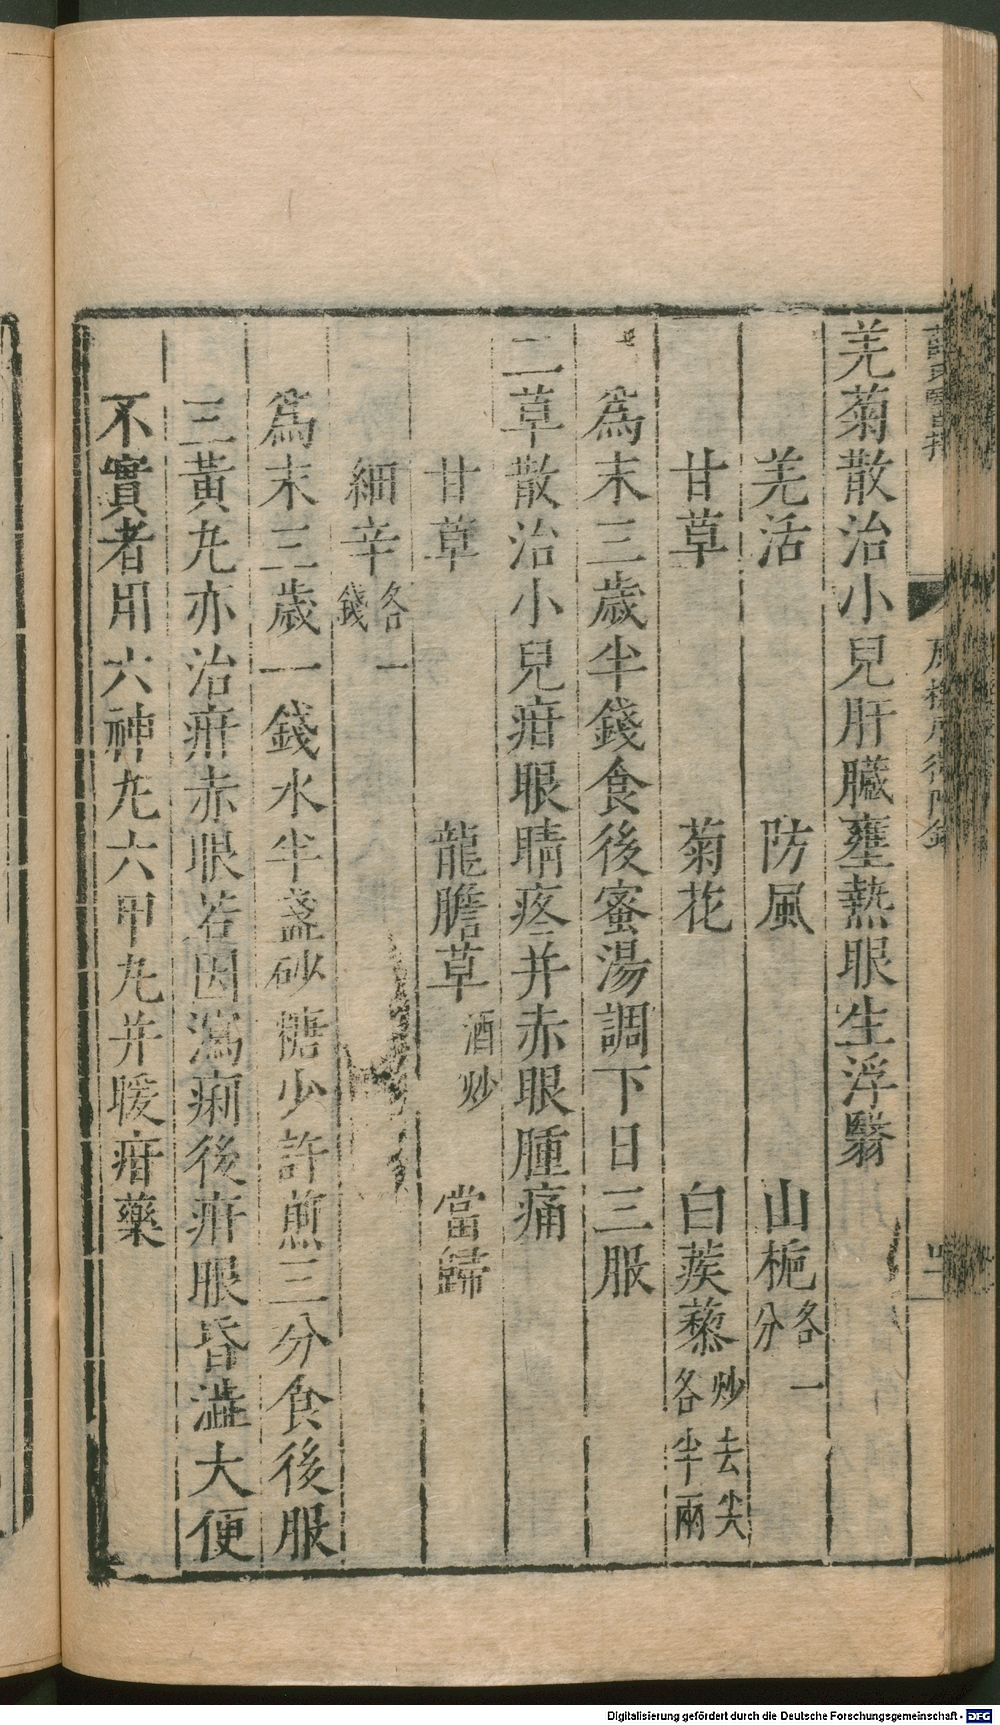 羌菊散治小兒肝臟壅熱眼生浮翳
羌活 防風 山梔各一分
甘草 菊花 白蒺藜炒去尖各半兩
爲末三歲半錢食後蜜湯調下日三服
二草散治小兒疳眼睛疼并赤眼腫痛
甘草 龍膽草酒炒 當歸
細辛各一錢
爲末三歲一錢水半盞砂糖少許煎三分食後服
三黃丸亦治疳赤眼若因瀉痢後疳眼昏澁大便
不實者用六神丸六甲丸并暖疳藥
Digitalisierung gefördert durch die Deutsche Forschungsgemeinschaft - DFG